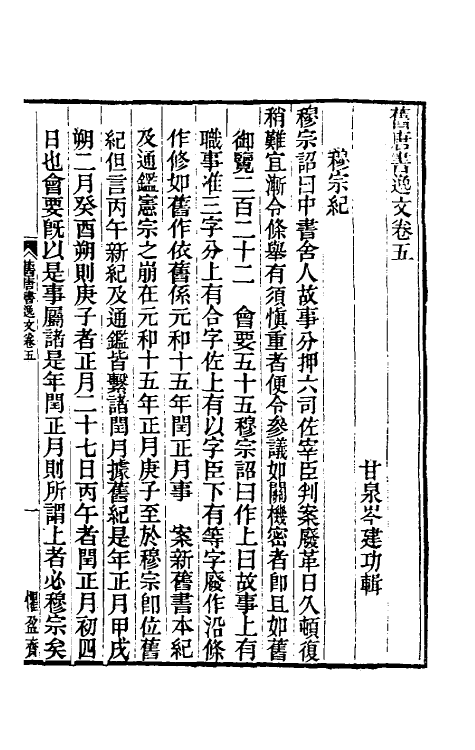 舊唐書逸文卷五
甘泉岑建功輯
穆宗紀
穆宗詔曰中書舍人故事分押六司佐宰臣判案廢革日久頓復
稍難宜漸令條舉有須慎重者便令參議如關機密者即且如舊
御覽二百二十二 會要五十五穆宗詔曰作上曰故事上有
職事准三字分上有合字佐上有以字臣下有等字廢作㳂條
作修如舊作依舊係元和十五年閏正月事 案新舊書本紀
及通鑑憲宗之崩在元和十五年正月庚子至於穆宗即位舊
紀但言丙午新紀及通鑑皆繫諸閏月據舊紀是年正月甲戌
朔二月癸酉朔則庚子者正月二十七日丙午者閏正月初四
日也會要既以是事屬諸是年閏正月則所謂上者必穆宗矣
舊唐書逸文卷五
一
懼盈齋